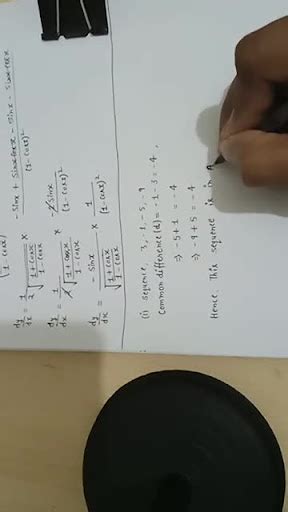 (1-cosx)
dy/dx = 1/2√(1+cosx/1-cosx) × -sinx + sinxcosx - sinx - sinxcosx/(1-cosx)²
dy/dx = 1/2√(1+cosx/1-cosx) × -2sinx/(1-cosx)²
dy/dx = -sinx/√(1+cosx/1-cosx) × 1/(1-cosx)²
(i) sequence, 3, -1, -5, -9
Common difference (d) = -1-3 = -4,
⇒ -5+1 = -4
⇒ -9+5 = -4
Hence. This sequence is